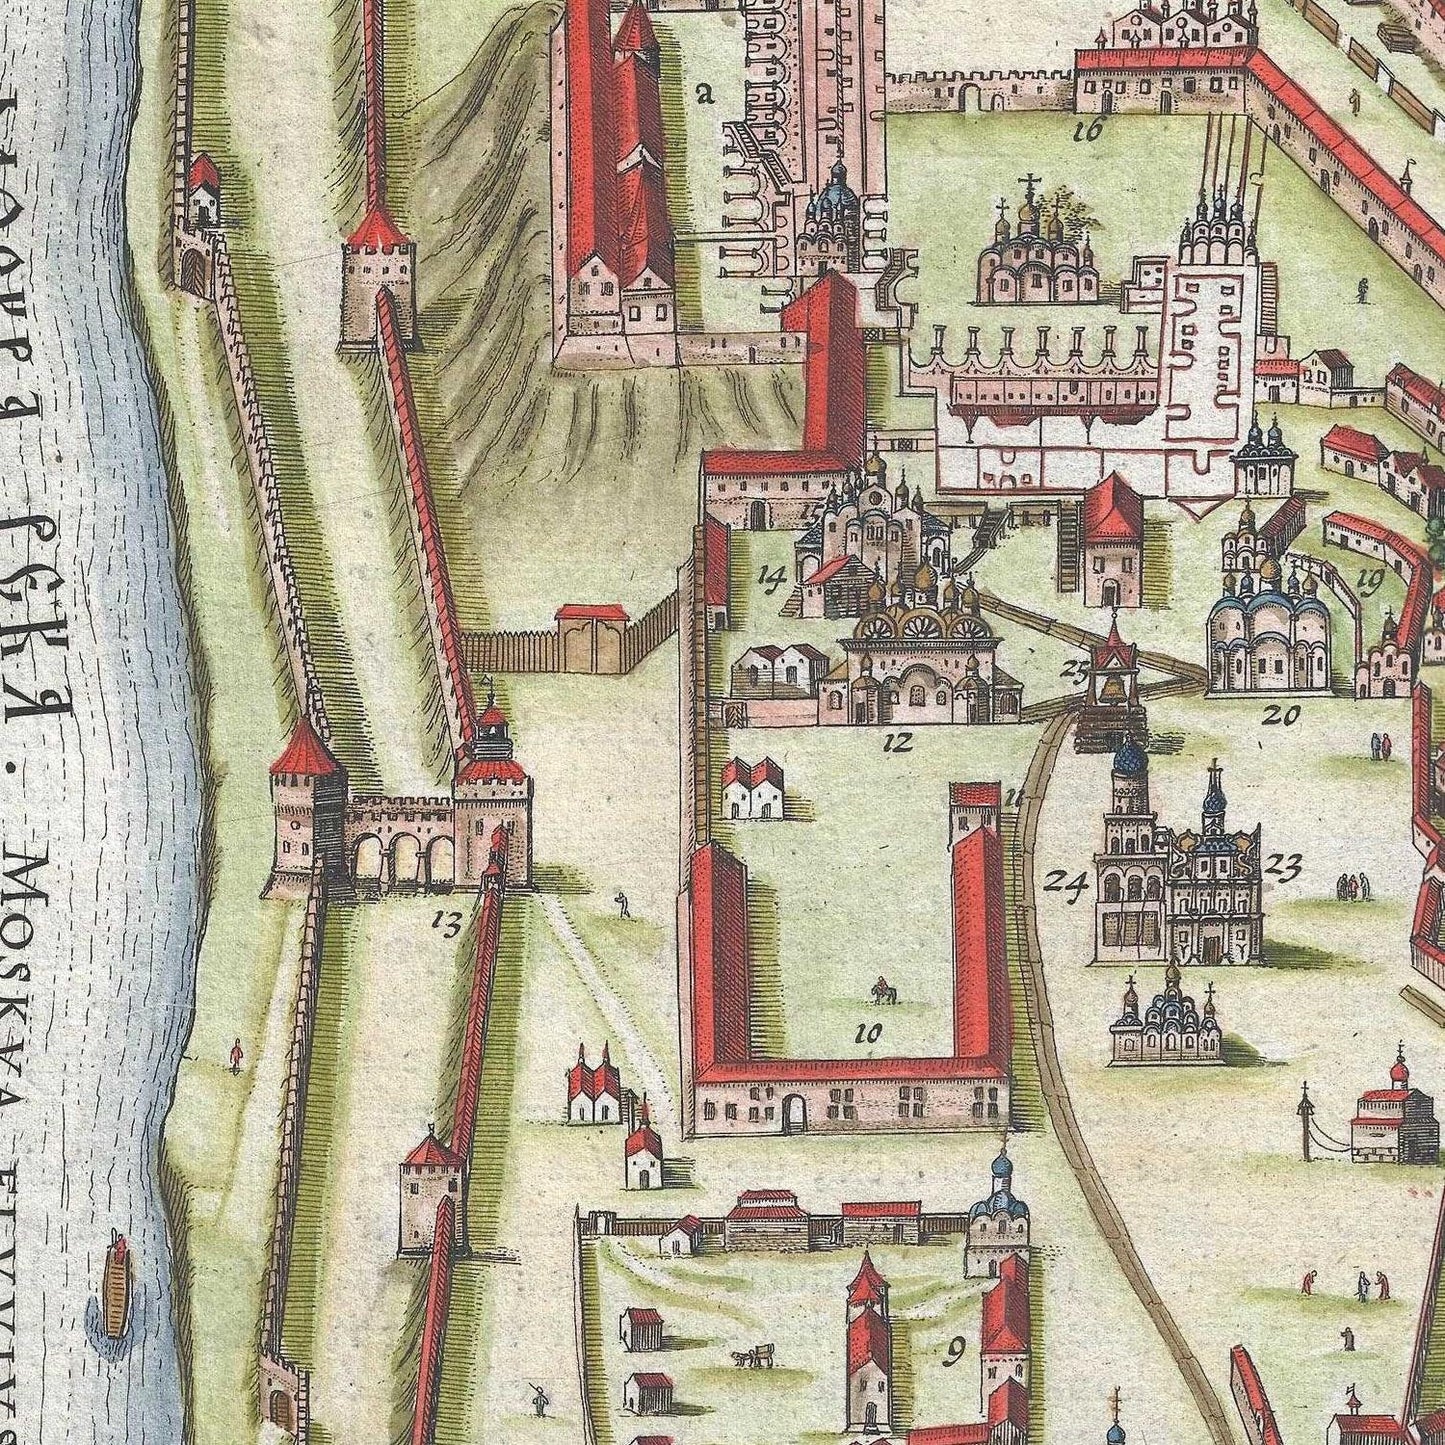 МОСКВА РЕКА · MOSKVA FLVVIVS
a
16
15
14
19
25
20
12
11
24
23
13
10
9